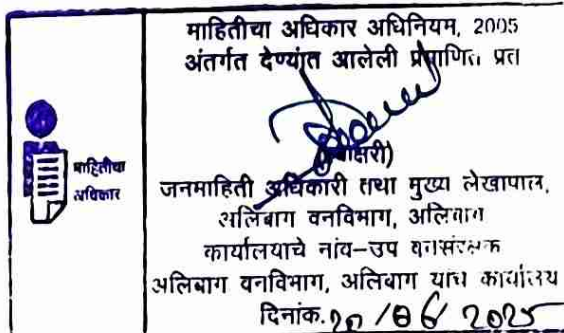 माहितीचा अधिकार अधिनियम, 2005
अंतर्गत देण्यांत आलेली प्रमाणित प्रत
माहितीचा
अधिकार
जनमाहिती अधिकारी तथा मुख्य लेखापाल,
अलिबाग वनविभाग, अलिबाग
कार्यालयाचे नांव-उप वनसंरक्षक
अलिबाग वनविभाग, अलिबाग यांचे कार्यालय
दिनांक. /06/2025